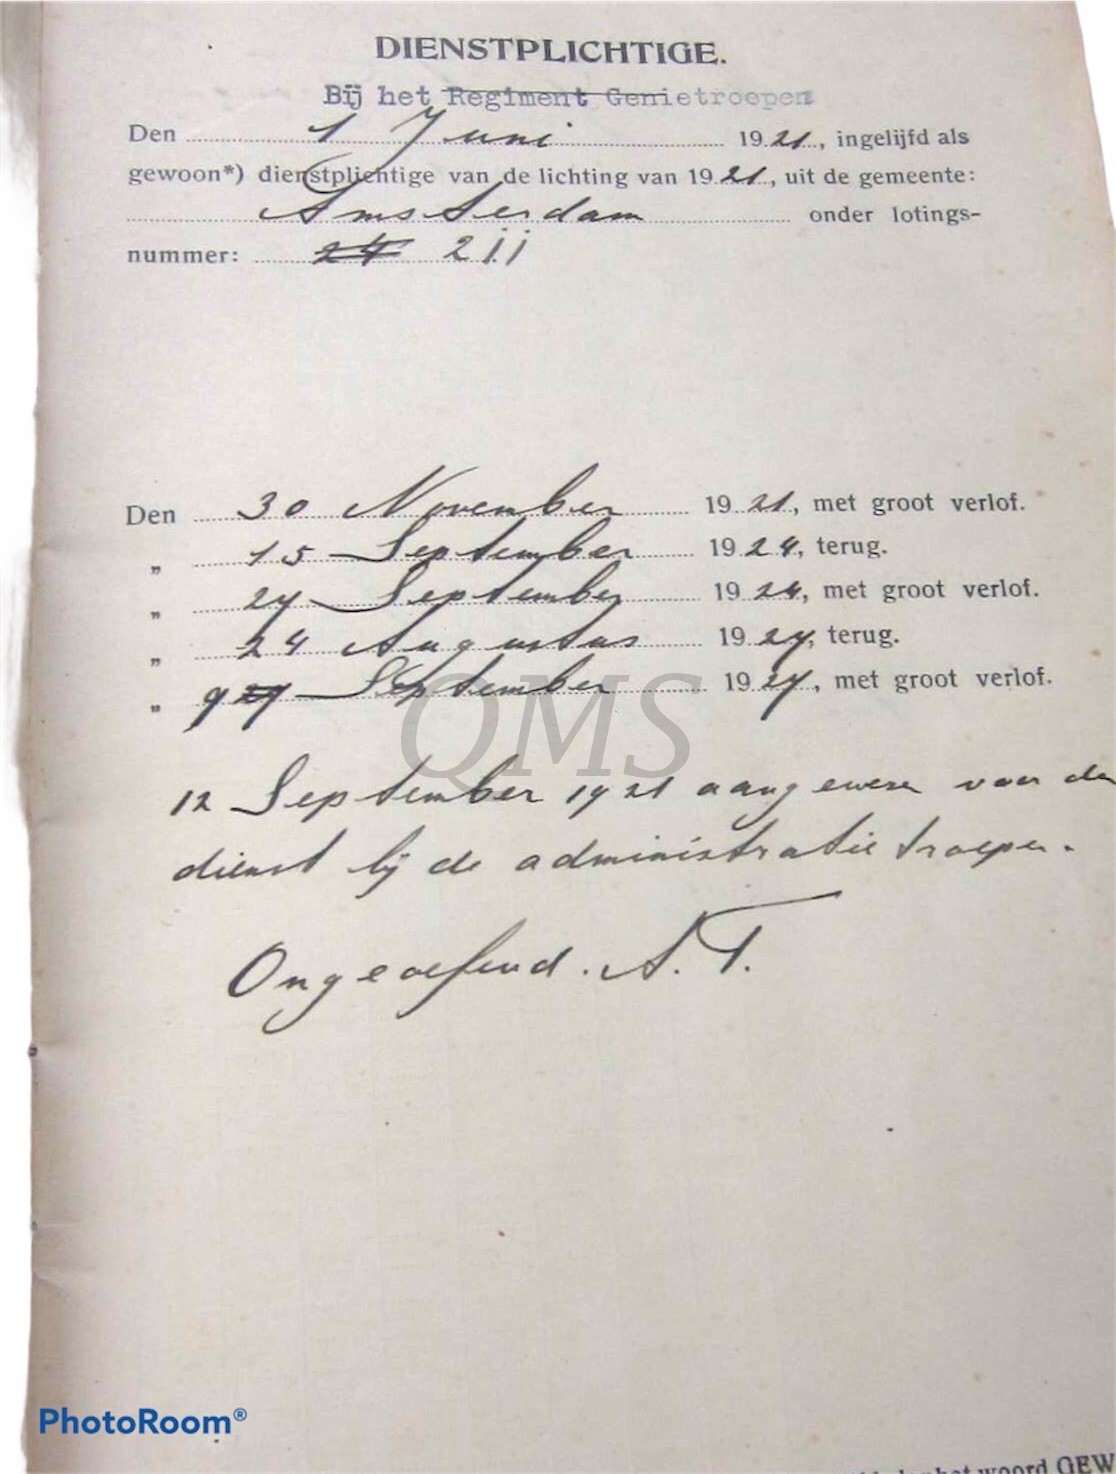 DIENSTPLICHTIGE.
Bij het Regiment Genietroepen
Den 1 Juni 1921, ingelijfd als
gewoon*) dienstplichtige van de lichting van 1921, uit de gemeente:
Amsterdam onder lotings-
nummer: 24 211
Den 30 November 1921, met groot verlof.
„ 15 September 1924, terug.
„ 27 September 1924, met groot verlof.
„ 24 Augustus 1927, terug.
„ 9 September 1927, met groot verlof.
QMS
12 September 1921 aangewezen voor den
dienst bij de administratie troepen.
Ongeoefend. A.T.
PhotoRoom®
het woord GEW